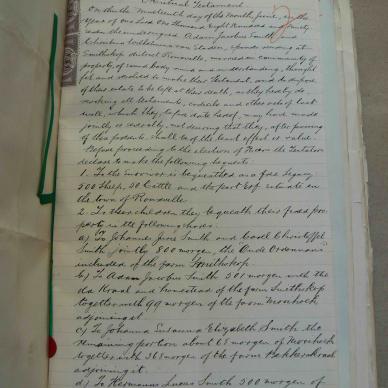 Mutual Testament
On this the Nineteenth day of the Month June, in the
year of our Lord One Thousand Eight Hundred and Ninety
before the undersigned Adam Jacobus Smith and
Christina Wilhelmina van Staden, spouses residing at
Smithskop district Rouxville, married in community of
property of sound body mind and understanding, thought
fit and resolved to make their Testament, and to dispose
of their estate to be left at their death, as they hereby do
revoking all testaments, codicils and other acts of last
will, which they, before date hereof, may have made
jointly or severally, not desiring that they, after passing
of these presents shall be of the least effect or value.
Before proceeding to the election of Heirs the Testators
declare to make the following bequests
1. To the survivor is bequeathed as a free legacy
500 Sheep, 50 Cattle and the part Erf situate in
the town of Rouxville.
2. To their children they bequeath their fixed pro-
perty in the following shares:
a) To Johannes Smith and Carel Christoffel
Smith jointly 800 morgen, the "Oude Ordonnantie"
included of the farm Smithskop
b) To Adam Jacobus Smith 501 morgen with the
old Kraal and homestead of the farm Smithskop
together with 99 morgen of the farm
adjoining it
c) To Johanna Susanna Elizabeth Smith, the
remaining portion about 65 morgen of
together with 365 morgen of the farm Bakkerskraah
adjoining it.
d) To Hermanus Lucas Smith 500 morgen of